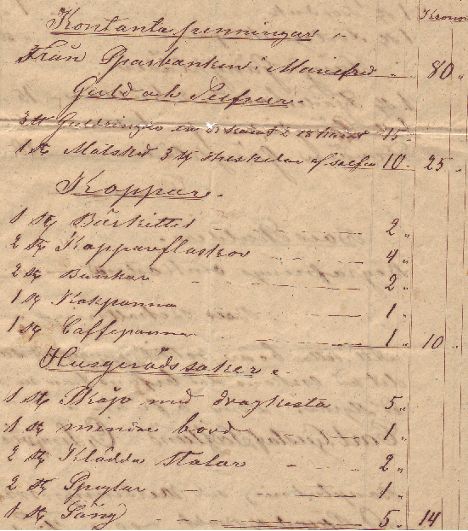 Kronor
Kontanta penningar
Från Sparbanken i Mariefred " 80 "
Guld och Silfver.
3 st Guldringar en 15 2 15
1 st Matsked 3 st theskedar af silfver 10 " 25 "
Koppar.
1 st Bärkittel 2 "
2 st Kopparflaskor 4 "
2 st Bunkar 2 "
1 st Kokpanna 1 "
1 st Caffepanna 1 " 10 "
Husgerådssaker.
1 st Skåp med dragkista 5 "
1 st mindre bord 1 "
2 st Klädda Stolar 2 "
2 st Speglar 1 "
1 st Säng 5 " 14